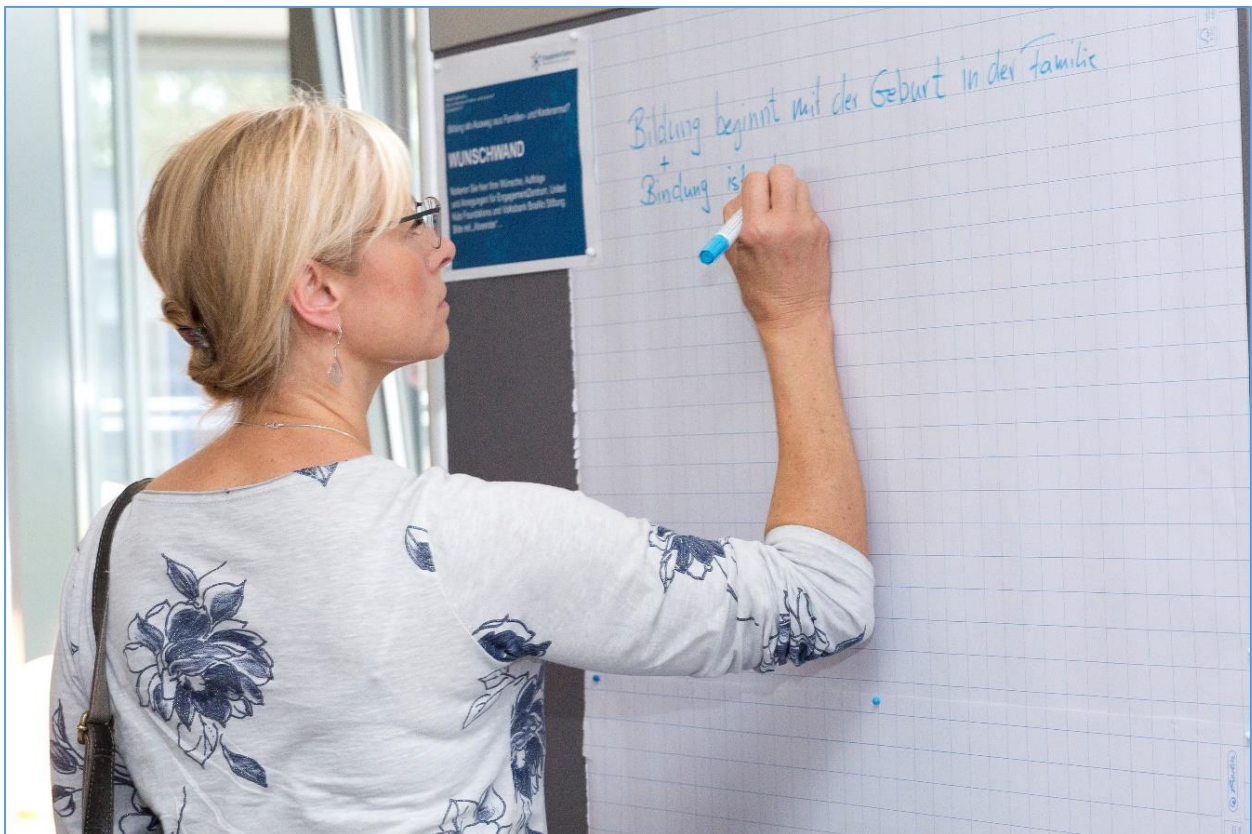 Bildung als Ausweg aus Familien- und Kinderarmut?
WUNSCHWAND
Notieren Sie hier Ihre Wünsche, Aufträge
und Anregungen für EngagementZentrum, United
Kids Foundations und Volksbank BraWo Stiftung.
Bitte mit „Absender“...
Bildung beginnt mit der Geburt in der Familie
+
Bindung ist